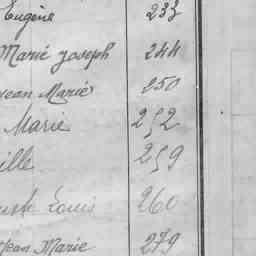 Eugène 233
Marie Joseph 244
Jean Marie 250
Marie 252
ille 259
Louis 260
Jean Marie 279